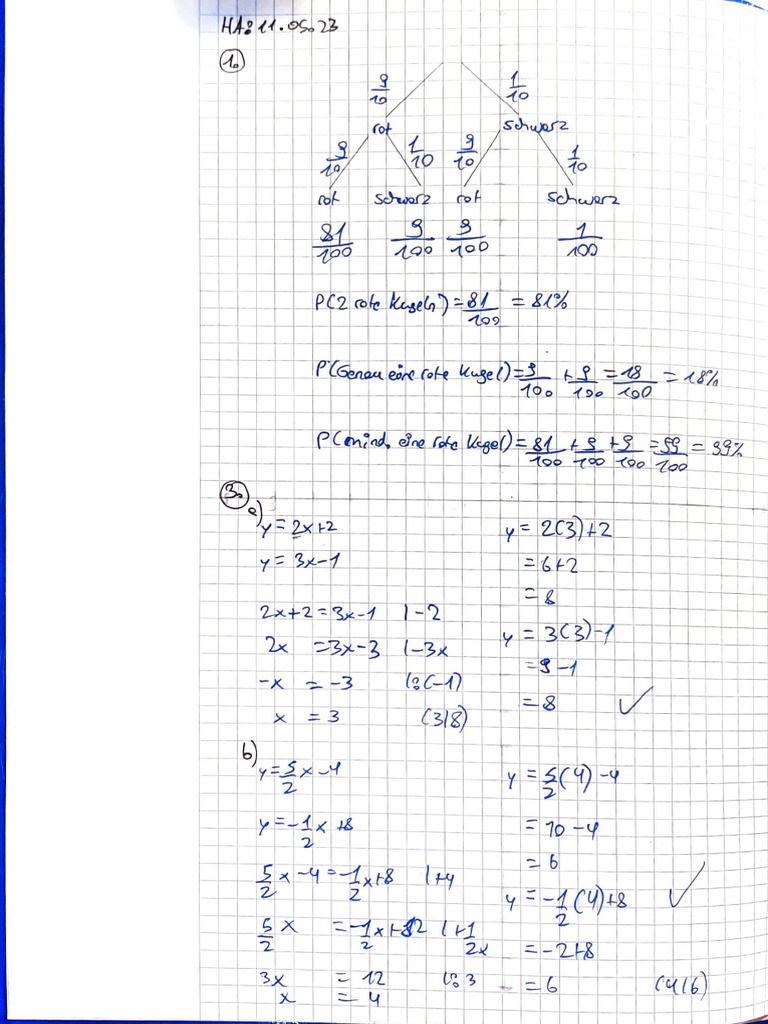 HA: 11.05.23
1.
9/10 1/10
rot schwarz
9/10 1/10 9/10 1/10
rot schwarz rot schwarz
81/100 9/100 9/100 1/100
P(2 rote Kugeln) = 81/100 = 81%
P(Genau eine rote Kugel) = 9/100 + 9/100 = 18/100 = 18%
P(mind. eine rote Kugel) = 81/100 + 9/100 + 9/100 = 99/100 = 99%
3.
a)
y = 2x+2
y = 3x-1
2x+2 = 3x-1 |-2
2x = 3x-3 |-3x
-x = -3 |:(-1)
x = 3 (3|8)
y = 2(3)+2
= 6+2
= 8
y = 3(3)-1
= 9-1
= 8 ✓
b)
y = 5/2 x -4
y = -1/2 x +8
5/2 x -4 = -1/2 x +8 |+4
5/2 x = -1/2 x + 12 |+1/2x
3x = 12 |:3
x = 4
y = 5/2 (4) -4
= 10 -4
= 6
y = -1/2 (4) +8 ✓
= -2+8
= 6 (4|6)